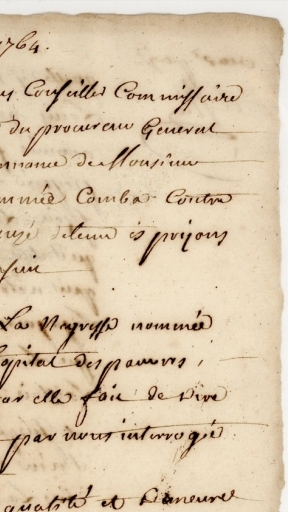 1764.
Conseiller Commissaire
du procureur General
de Monsieur
nommée Comba Contre
detenu es prisons
La Negresse nommée
hopital des pauvres,
par elle fait de dire
par nous interrogée
qualité et Demeure